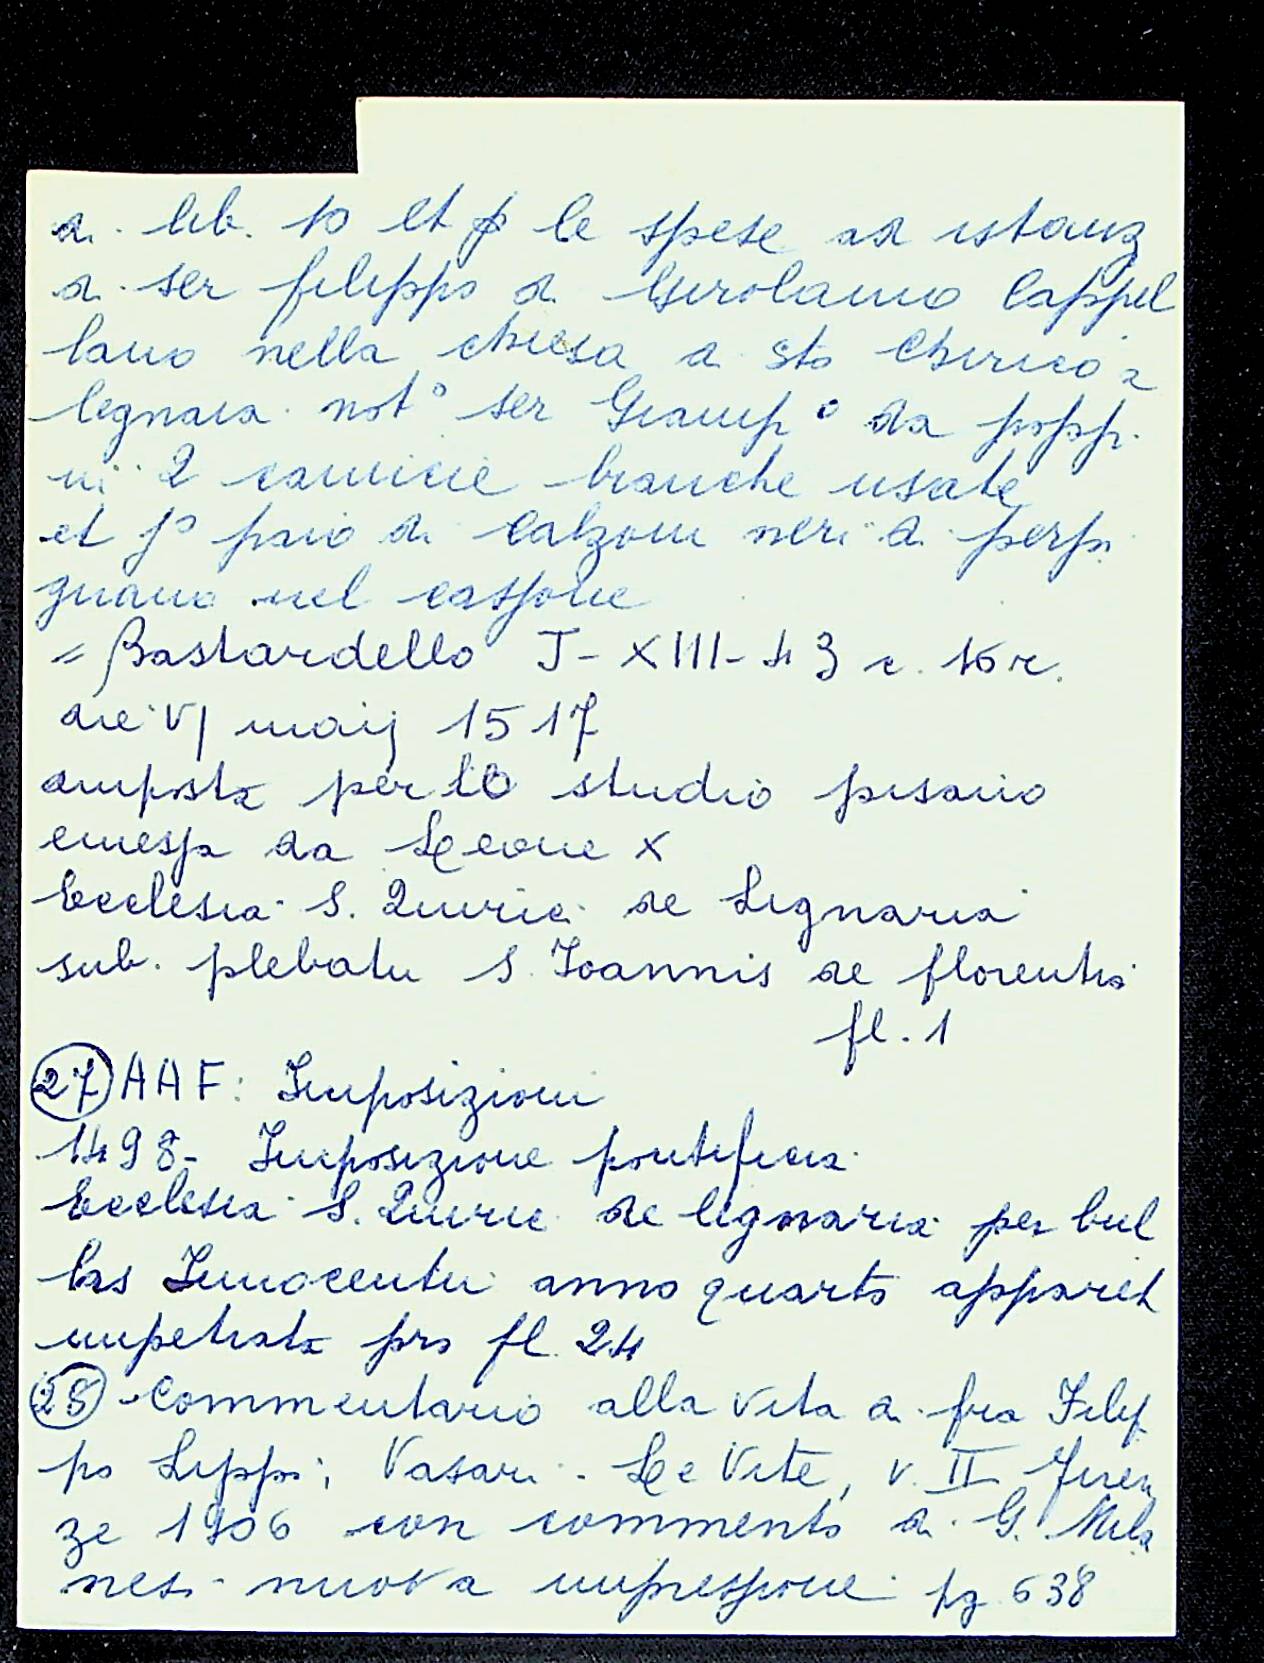 di lib. 10 et p le spese ad istanz
di ser filippo di Girolamo Cappel
lano nella chiesa di sto Chirico a
legnaia not° ser Giamp° da poppi
ni 2 camicie bianche usate
et j° paio di calzoni neri di perpi
gnano nel cassone
= Bastardello J-XIII-43 c. 16r.
die VI maij 1517
imposta per lo studio pisano
emessa da Leone X
Ecclesia S. Quirici de Lignaria
sub. plebatu S. Joannis de florentia
fl. 1
(27) AAF: Imposizioni
1498- Imposizione pontificia
Ecclesia S. Quirici de lignaria per bul
las Innocentii anno quarto apparet
impetrata pro fl. 24
(28) - Commentario alla Vita di fra Filip
po Lippi; Vasari - Le Vite, v. II Firen
ze 1906 con commento di G. Mila
nesi - nuova impressione pg 638